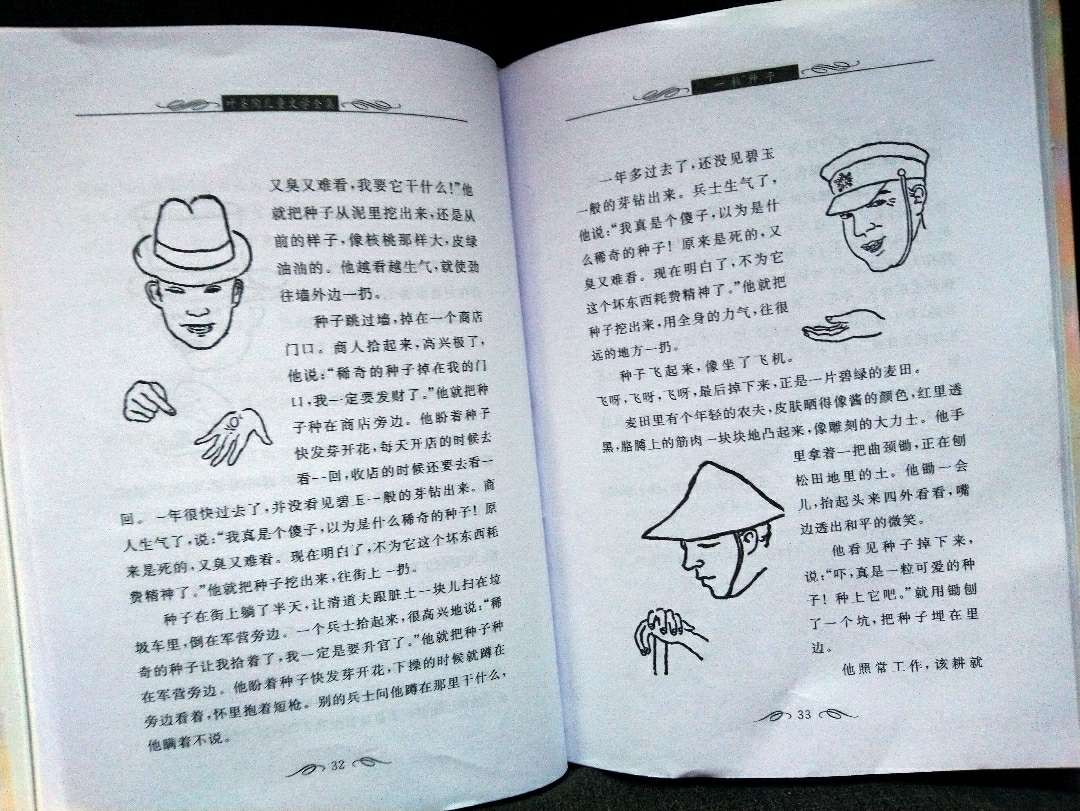 叶圣陶儿童文学全集
又臭又难看,我要它干什么!”他
就把种子从泥里挖出来,还是从
前的样子,像核桃那样大,皮绿
油油的。他越看越生气,就使劲
往墙外边一扔。
种子跳过墙,掉在一个商店
门口。商人拾起来,高兴极了,
他说:“稀奇的种子掉在我的门
口,我一定要发财了。”他就把种
子种在商店旁边。他盼着种子
快发芽开花,每天开店的时候去
看一回,收店的时候还要去看一
回。一年很快过去了,并没看见碧玉一般的芽钻出来。商
人生气了,说:“我真是个傻子,以为是什么稀奇的种子!原
来是死的,又臭又难看。现在明白了,不为它这个坏东西耗
费精神了。”他就把种子挖出来,往街上一扔。
种子在街上躺了半天,让清道夫跟脏土一块儿扫在垃
圾车里,倒在军营旁边。一个兵士拾起来,很高兴地说:“稀
奇的种子让我拾着了,我一定是要升官了。”他就把种子种
在军营旁边。他盼着种子快发芽开花,下操的时候就蹲在
旁边看着,怀里抱着短枪。别的兵士问他蹲在那里干什么,
他瞒着不说。
32
一粒种子
一年多过去了,还没见碧玉
一般的芽钻出来。兵士生气了,
他说:“我真是个傻子,以为是什
么稀奇的种子!原来是死的,又
臭又难看。现在明白了,不为它
这个坏东西耗费精神了。”他就把
种子挖出来,用全身的力气,往很
远的地方一扔。
种子飞起来,像坐了飞机。
飞呀,飞呀,飞呀,最后掉下来,正是一片碧绿的麦田。
麦田里有个年轻的农夫,皮肤晒得像酱的颜色,红里透
黑,胳膊上的筋肉一块块地凸起来,像雕刻的大力士。他手
里拿着一把曲颈锄,正在刨
松田地里的土。他锄一会
儿,抬起头来四外看看,嘴
边透出和平的微笑。
他看见种子掉下来,
说:“吓,真是一粒可爱的种
子!种上它吧。”就用锄刨
了一个坑,把种子埋在里
边。
他照常工作,该耕就
33